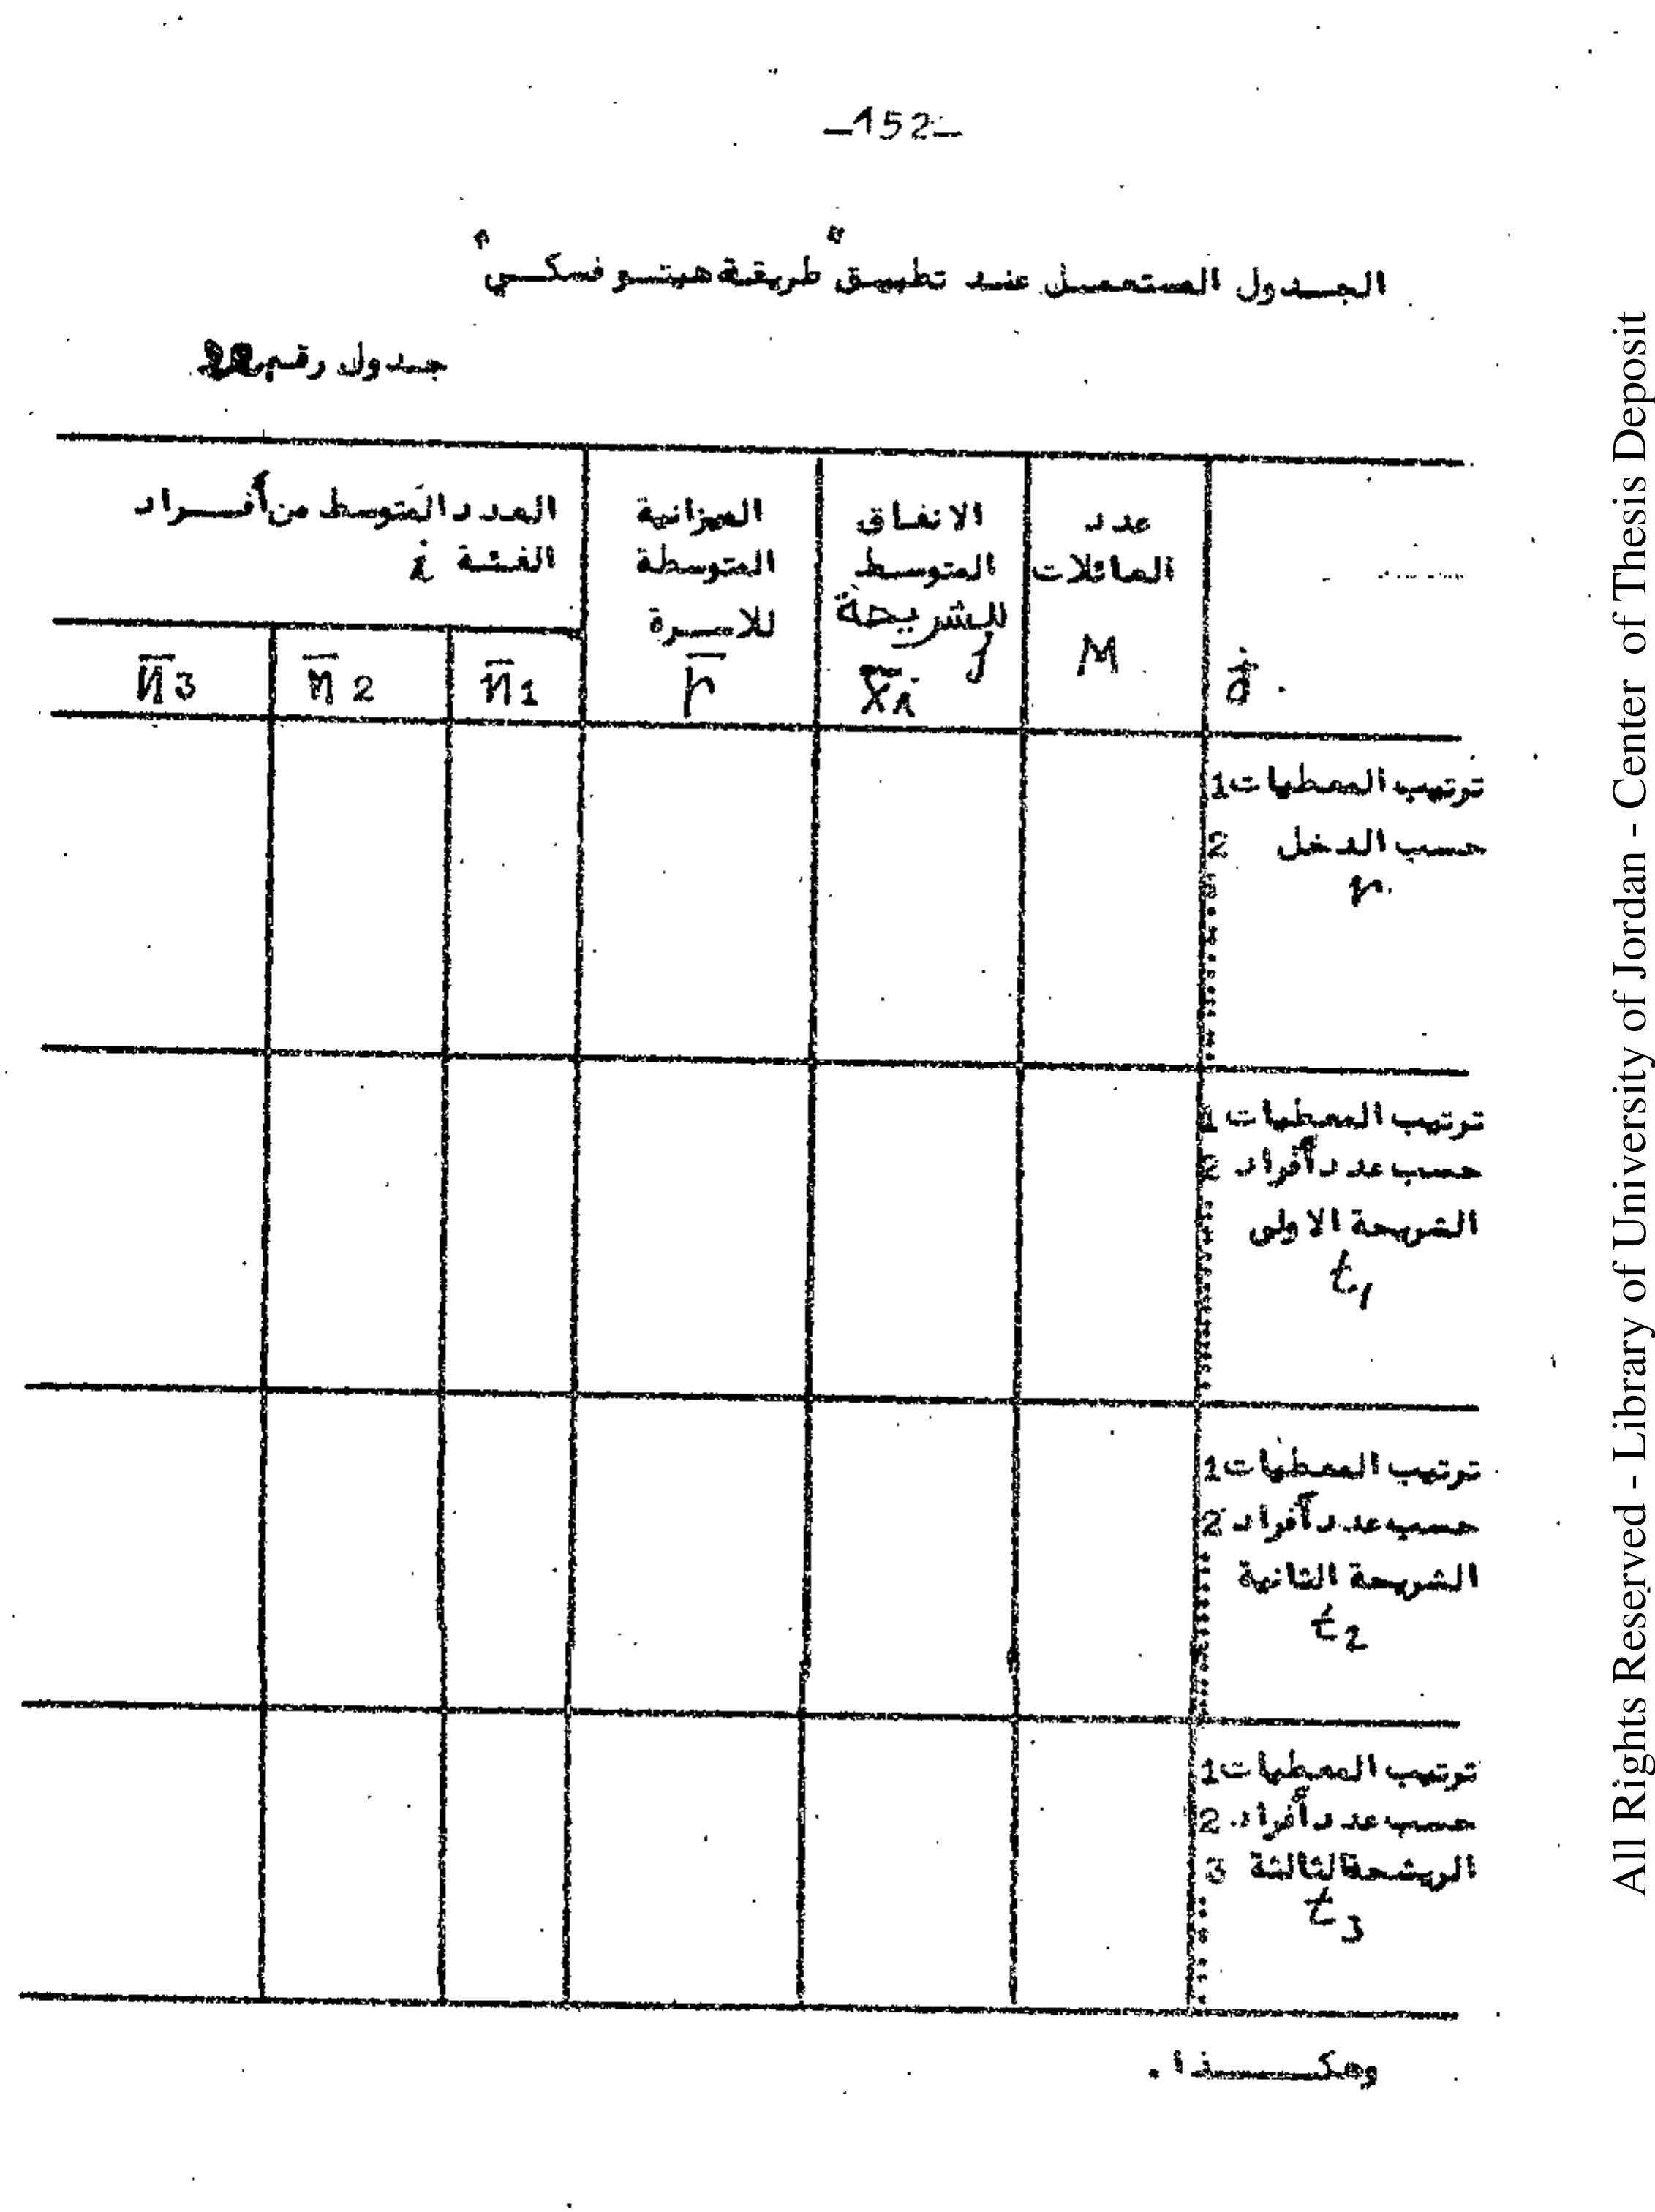 –152–
الجدول المستعمل عند تطبيق "طريقة هيتوفسكي"
جدول رقم
عدد العائلات M
الانفاق المتوسط للشريحة j X̄i
الميزانية المتوسطة للاسرة r̄
العدد المتوسط من أفراد الفئة i
j
n̄1
n̄2
n̄3
ترتيب المعطيات 1
حسب الدخل 2
r
ترتيب المعطيات 1
حسب عدد أفراد 2
الشريحة الاولى
t1
ترتيب المعطيات 1
حسب عدد أفراد 2
الشريحة الثانية
t2
ترتيب المعطيات 1
حسب عدد أفراد 2
الريشحة الثالثة 3
t3
وهكذا .
All Rights Reserved - Library of University of Jordan - Center of Thesis Deposit